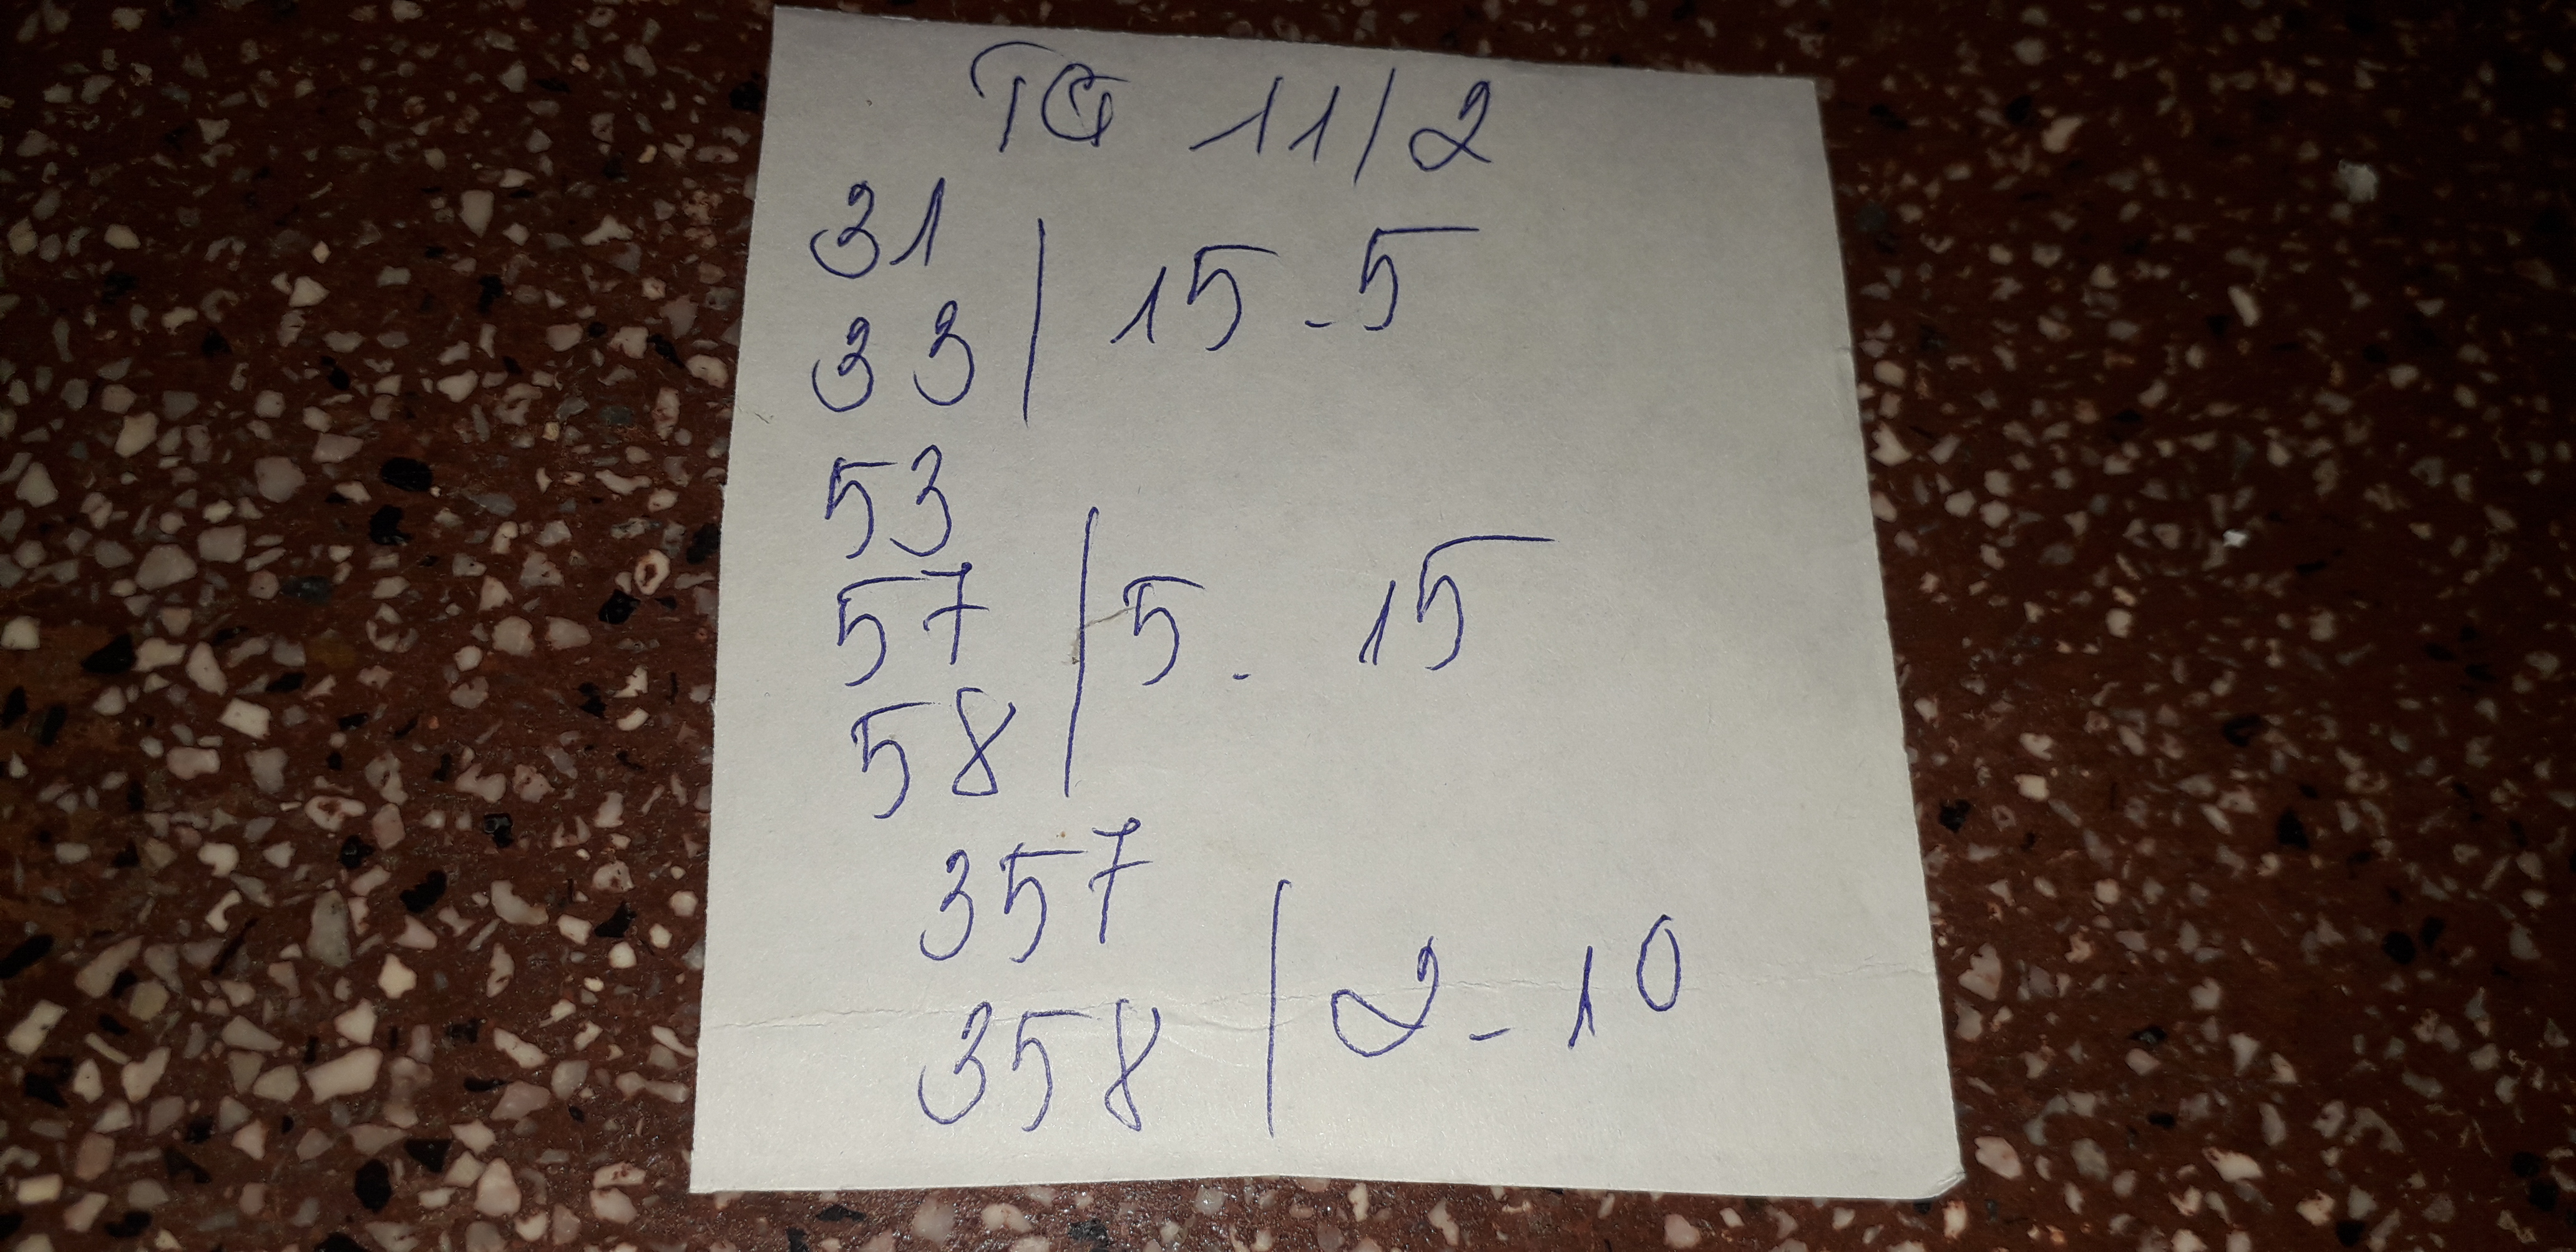 TG 11/2
31
33 | 15-5
53
57 | 5-15
58
357
358 | 2-10